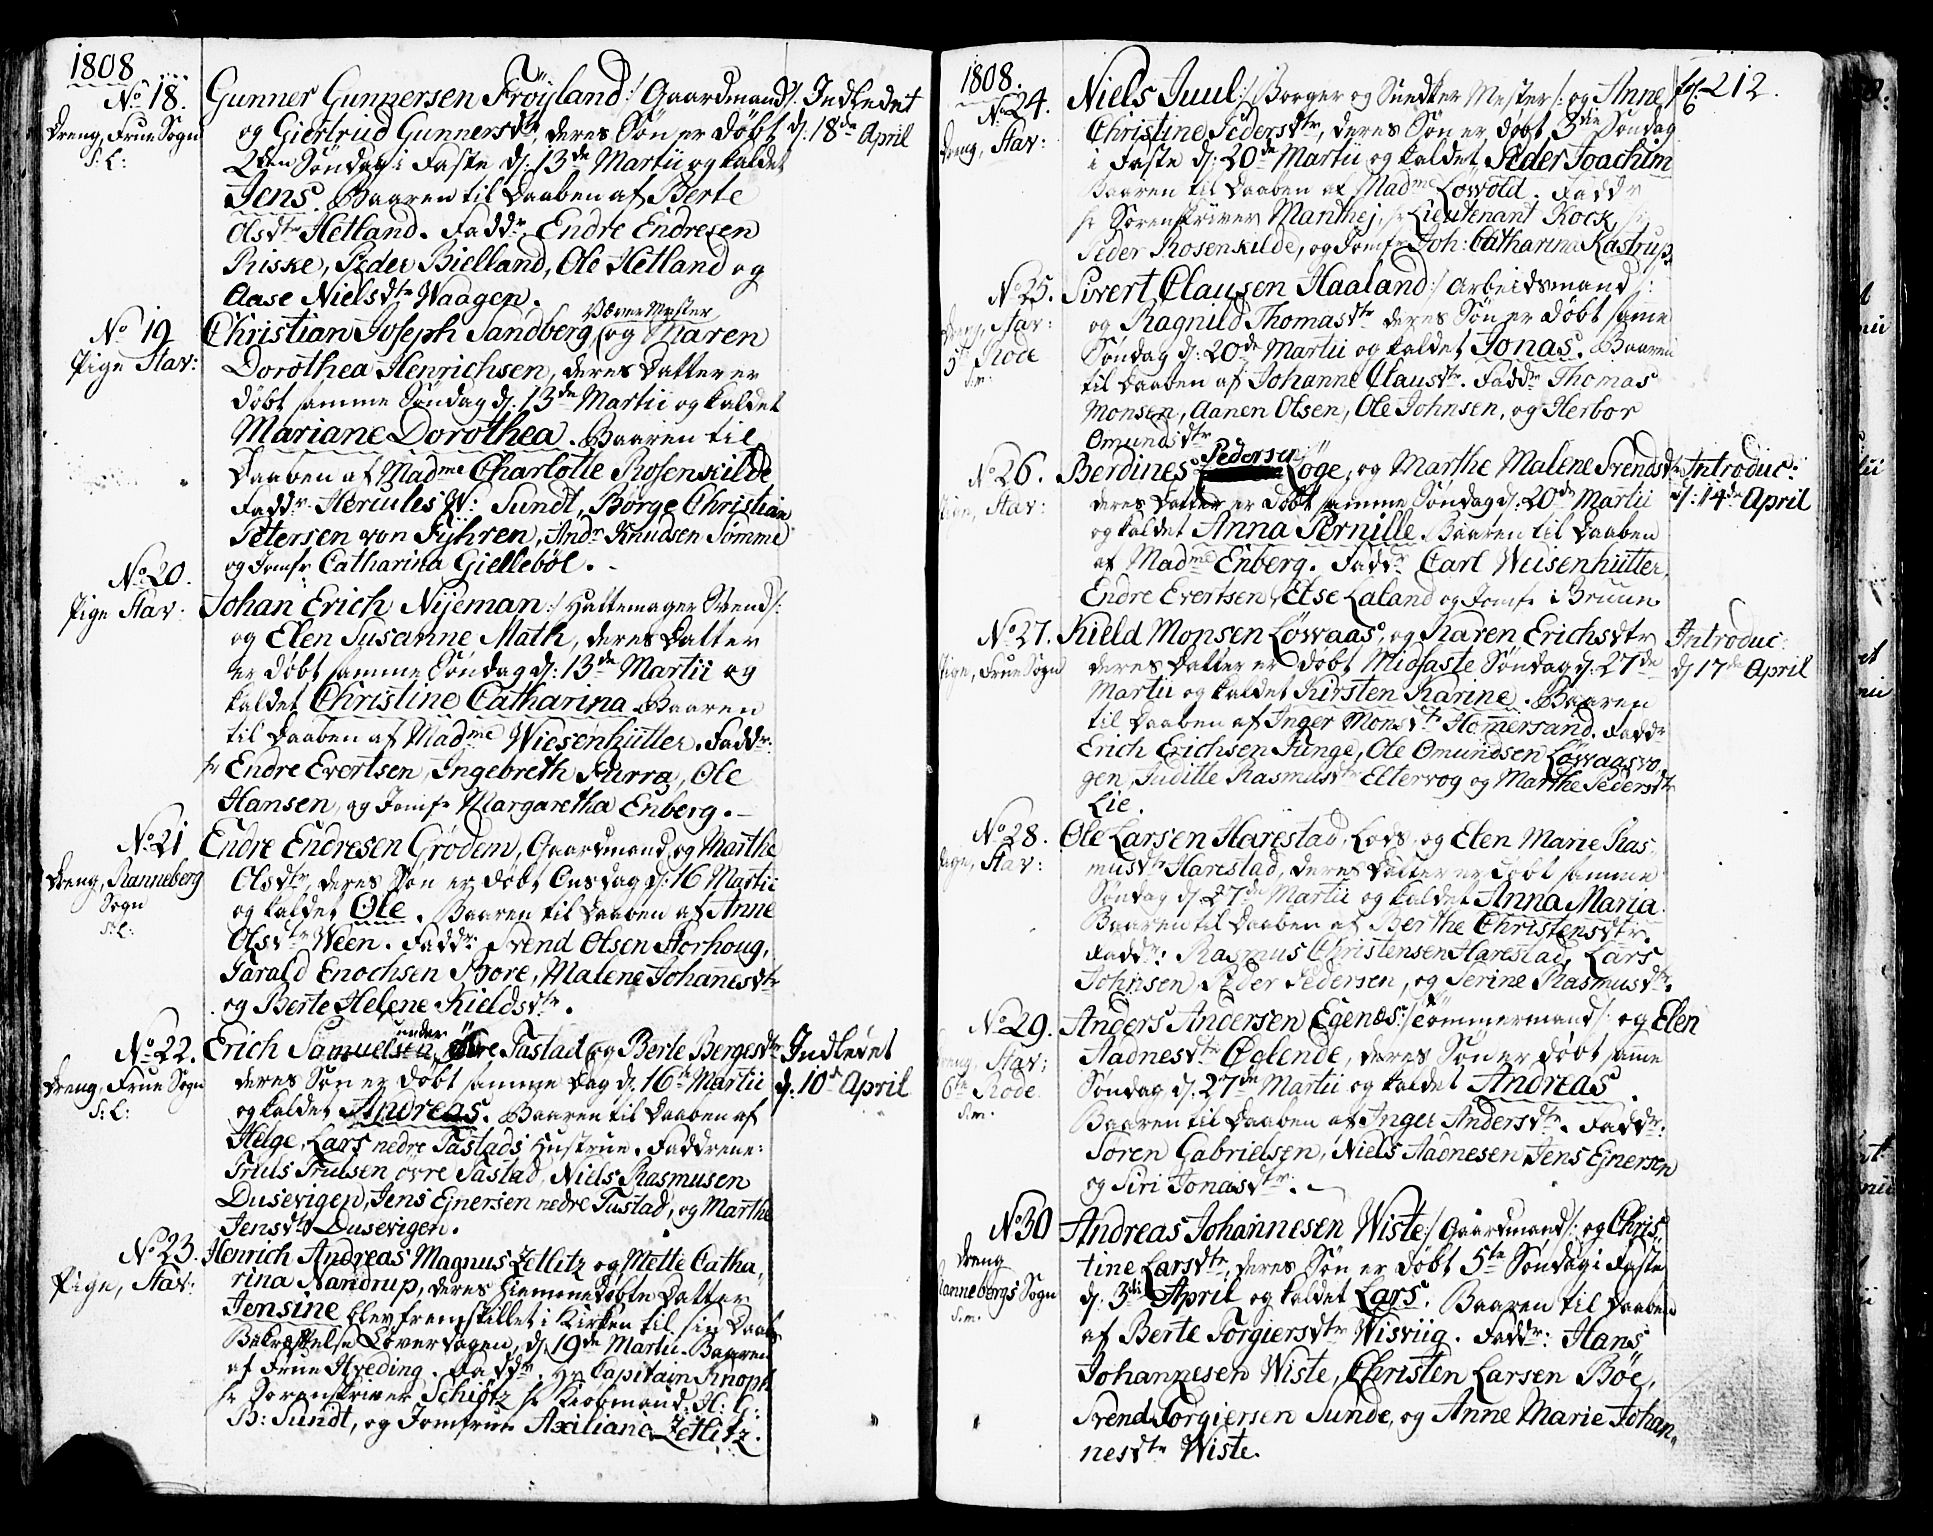 1808
No 18.
Dreng, Frue Sogn
S: L:
Gunner Gunnersen Fröyland :/ Gaardmand /: Indledet
og Giertrud Gunnersdtr, deres Sön er döbt d: 18de April
2den Söndag i Faste d: 13de Martii og kaldet
Jens. Baaren til Daaben af Berte
Olsdtr Hetland. Faddr Endre Endresen
Riske, Peder Bielland, Ole Hetland og
Aase Nielsdtr Waagen.
No 19
Pige Stav:
Væver Mester
Christian Joseph Sandberg og Maren
Dorothea Henrichsen, deres Datter er
döbt samme Söndag d: 13de Martii og kaldet
Mariane Dorothea. Baaren til
Daaben af Madme Charlotte Rosenkilde
Faddr Hercules W: Sundt, Börge Christian
Petersen von Fyhren, Andr Knudsen Sömme
og Jomfr Catharina Gielleböl.
No 20.
Pige Stav:
Johan Erich Nijeman :/ Hattemager Svend /:
og Elen Susanne Math, deres Datter
er döbt samme Söndag d: 13de Martii og
kaldet Christine Catharina Baaren
til Daaben af Madme Wiesenhütter. Faddr:
hr Endre Evertsen, Ingebreth Purra, Ole
Hansen, og Jomfr Margaretha Enberg.
No 21
Dreng, Ranneberg
Sogn
S: L:
Endre Endresen Grödem, Gaardmand, og Marthe
Olsdtr, deres Sön er döbt Onsdag d: 16 Martii
og kaldet Ole. Baaren til Daaben af Anne
Olsdtr Ween. Faddr: Svend Olsen Storhoug,
Tarald Enochsen Bore, Malene Johannesdtr
og Berte Helene Kieldsdtr.
No 22.
Dreng, Frue Sogn
S: L:
under
Erich Samuelsen Tastad og Berte Bergesdtr Indledet
deres Sön er döbt samme Dag d: 16de Martii d: 10d April
og kaldet Andreas. Baaren til Daaben af
Helge, Lars nedre Tastads Hustrue. Faddrene:
Truls Trulsen övre Tastad, Niels Rasmusen
Dusevigen, Jens Ejnersen nedre Tastad, og Marthe
Jensdtr Dusevigen.
No 23.
Pige, Stav:
Henrich Andreas Magnus Zetlitz og Mette Catha,
rina Nandrup, deres hiemmedöbte Datter
Jensine blev fremstillet i Kirken til sin Daabs
Bekræftelse Löverdagen, d: 19de Martii. Baaren
af Frue Hveding. Faddr: Hr Capitain Knoph
hr Sorenskriver Schiötz hr Kiöbmand: H: G:
B: Sundt, og Jomfrue Axiliane Zetlitz.
1808.
No 24.
Dreng, Stav:
Niels Juul :/ Borger og Snedker Mester /: og Anne fol. 212.
Christine Pedersdtr, deres Sön er döbt 3die Söndag
i Faste d: 20de Martii og kaldet Peder Joachim
Baaren til Daaben af Madme Löwold. Faddr
hr Sorenskriver Manthej, hr Lieutenant Kock, hr
Peder Rosenkilde, og Jomfr Joh: Catharina Kastrup.
No 25.
Dreng, Stav:
5te Rode
S: m:
Sivert Clausen Haaland :/ Arbeidsmand /:
og Ragnild Thomasdtr deres Sön er döbt samme
Söndag d: 20de Martii og kaldet Jonas. Baaren
til Daaben af Johanne Clausdtr. Faddr Thomas
Monsen, Aanen Olsen, Ole Johnsen, og Herbor
Omundsdtr
No 26.
Pige, Stav:
Pedersen
Berdines Löge, og Marthe Malene Svendsdtr Introduc:
deres Datter er döbt samme Söndag d: 20de Martii d: 14de April
og kaldet Anna Pernille Baaren til Daaben
af Madme Enberg. Faddr Carl Weisenhütter,
Endre Evertsen, Else Laland og Jomfr i Bruun.
No 27.
Pige, Frue Sogn
Kield Monsen Löwaas, og Karen Erichsdtr Introduc:
deres Datter er döbt Midfaste Söndag d: 27de d: 17de April
Martii og kaldet Kirsten Karine. Baaren
til Daaben af Inger Monsdtr Homersand. Faddr
Erich Erichsen Tunge, Ole Omundsen Löwaasvo,
gen, Juditte Rasmusdtr Eltervog og Marthe Pedersdtr
Lie.
No 28.
Pige, Stav:
Ole Larsen Harestad, Lods, og Elen Marie Ras,
musdtr Harestad, deres Datter er döbt samme
Söndag d: 27de Martii og kaldet Anna Maria.
Baaren til Daaben af Berthe Christensdtr.
Faddr: Rasmus Christensen Harestad, Lars
Johnsen, Peder Pedersen, og Serine Rasmusdtr.
No 29.
Dreng, Stav:
6te Rode
S. m.
Anders Andersen Egenæs :/ Tömmermand /: og Elen
Aadnesdtr Öglende, deres Sön er döbt samme
Söndag d: 27de Martii og kaldet Andreas.
Baaren til Daaben af Inger Andersdtr. Faddr:
Sören Gabrielsen, Niels Aadnesen, Jens Ejnersen
og Siri Jonasdtr.
No 30
Dreng
Rannebergs Sogn
S. m.
Andreas Johannesen Wiste :/ Gaardmand /: og Chris,
tine Larsdtr, deres Sön er döbt 5te Söndag i Faste
d: 3die April og kaldet Lars. Baaren til Daaben
af Berte Torgiersdtr Wisviig. Faddr: Hans
Johannesen Wiste, Christen Larsen Böe,
Svend Torgiersen Sunde, og Anne Marie Johan,
nesdtr Wiste.